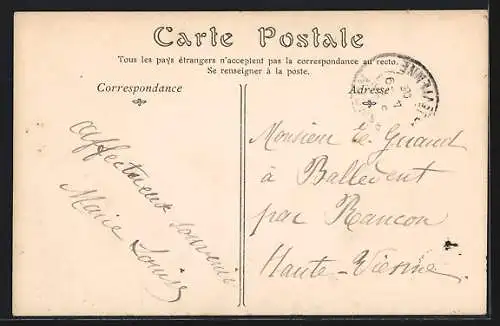 Carte Postale
Tous les pays étrangers n'acceptent pas la correspondance au recto.
Se renseigner à la poste.
Correspondance
Adresse
affectueux souvenir
Marie Louise
Monsieur le Guand
à Balledent
par Rancon
Haute-Vienne